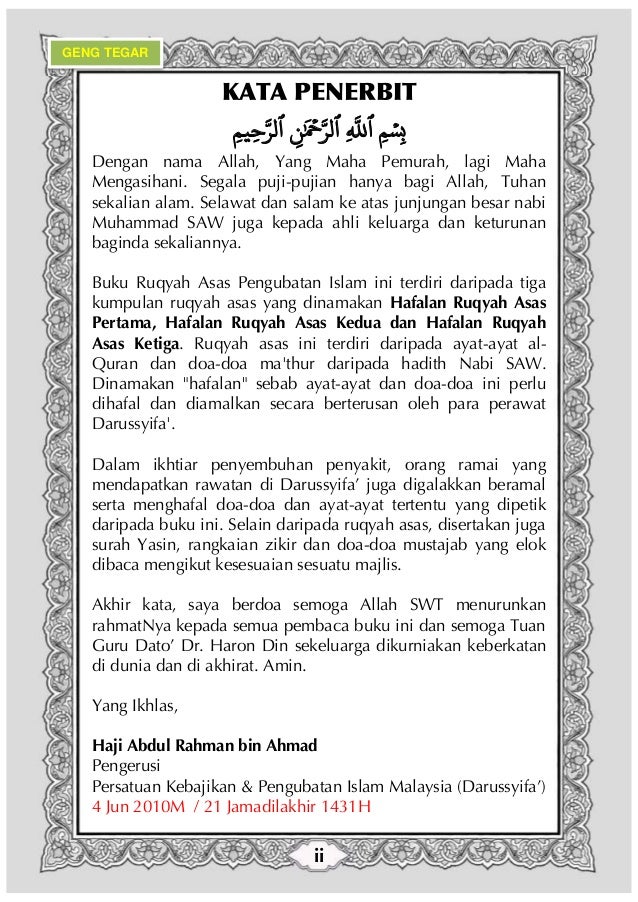 GENG TEGAR
KATA PENERBIT
بِسْمِ ٱللَّهِ ٱلرَّحْمَـٰنِ ٱلرَّحِيمِ
Dengan nama Allah, Yang Maha Pemurah, lagi Maha
Mengasihani. Segala puji-pujian hanya bagi Allah, Tuhan
sekalian alam. Selawat dan salam ke atas junjungan besar nabi
Muhammad SAW juga kepada ahli keluarga dan keturunan
baginda sekaliannya.
Buku Ruqyah Asas Pengubatan Islam ini terdiri daripada tiga
kumpulan ruqyah asas yang dinamakan Hafalan Ruqyah Asas
Pertama, Hafalan Ruqyah Asas Kedua dan Hafalan Ruqyah
Asas Ketiga. Ruqyah asas ini terdiri daripada ayat-ayat al-
Quran dan doa-doa ma'thur daripada hadith Nabi SAW.
Dinamakan "hafalan" sebab ayat-ayat dan doa-doa ini perlu
dihafal dan diamalkan secara berterusan oleh para perawat
Darussyifa'.
Dalam ikhtiar penyembuhan penyakit, orang ramai yang
mendapatkan rawatan di Darussyifa’ juga digalakkan beramal
serta menghafal doa-doa dan ayat-ayat tertentu yang dipetik
daripada buku ini. Selain daripada ruqyah asas, disertakan juga
surah Yasin, rangkaian zikir dan doa-doa mustajab yang elok
dibaca mengikut kesesuaian sesuatu majlis.
Akhir kata, saya berdoa semoga Allah SWT menurunkan
rahmatNya kepada semua pembaca buku ini dan semoga Tuan
Guru Dato’ Dr. Haron Din sekeluarga dikurniakan keberkatan
di dunia dan di akhirat. Amin.
Yang Ikhlas,
Haji Abdul Rahman bin Ahmad
Pengerusi
Persatuan Kebajikan & Pengubatan Islam Malaysia (Darussyifa’)
4 Jun 2010M / 21 Jamadilakhir 1431H
ii